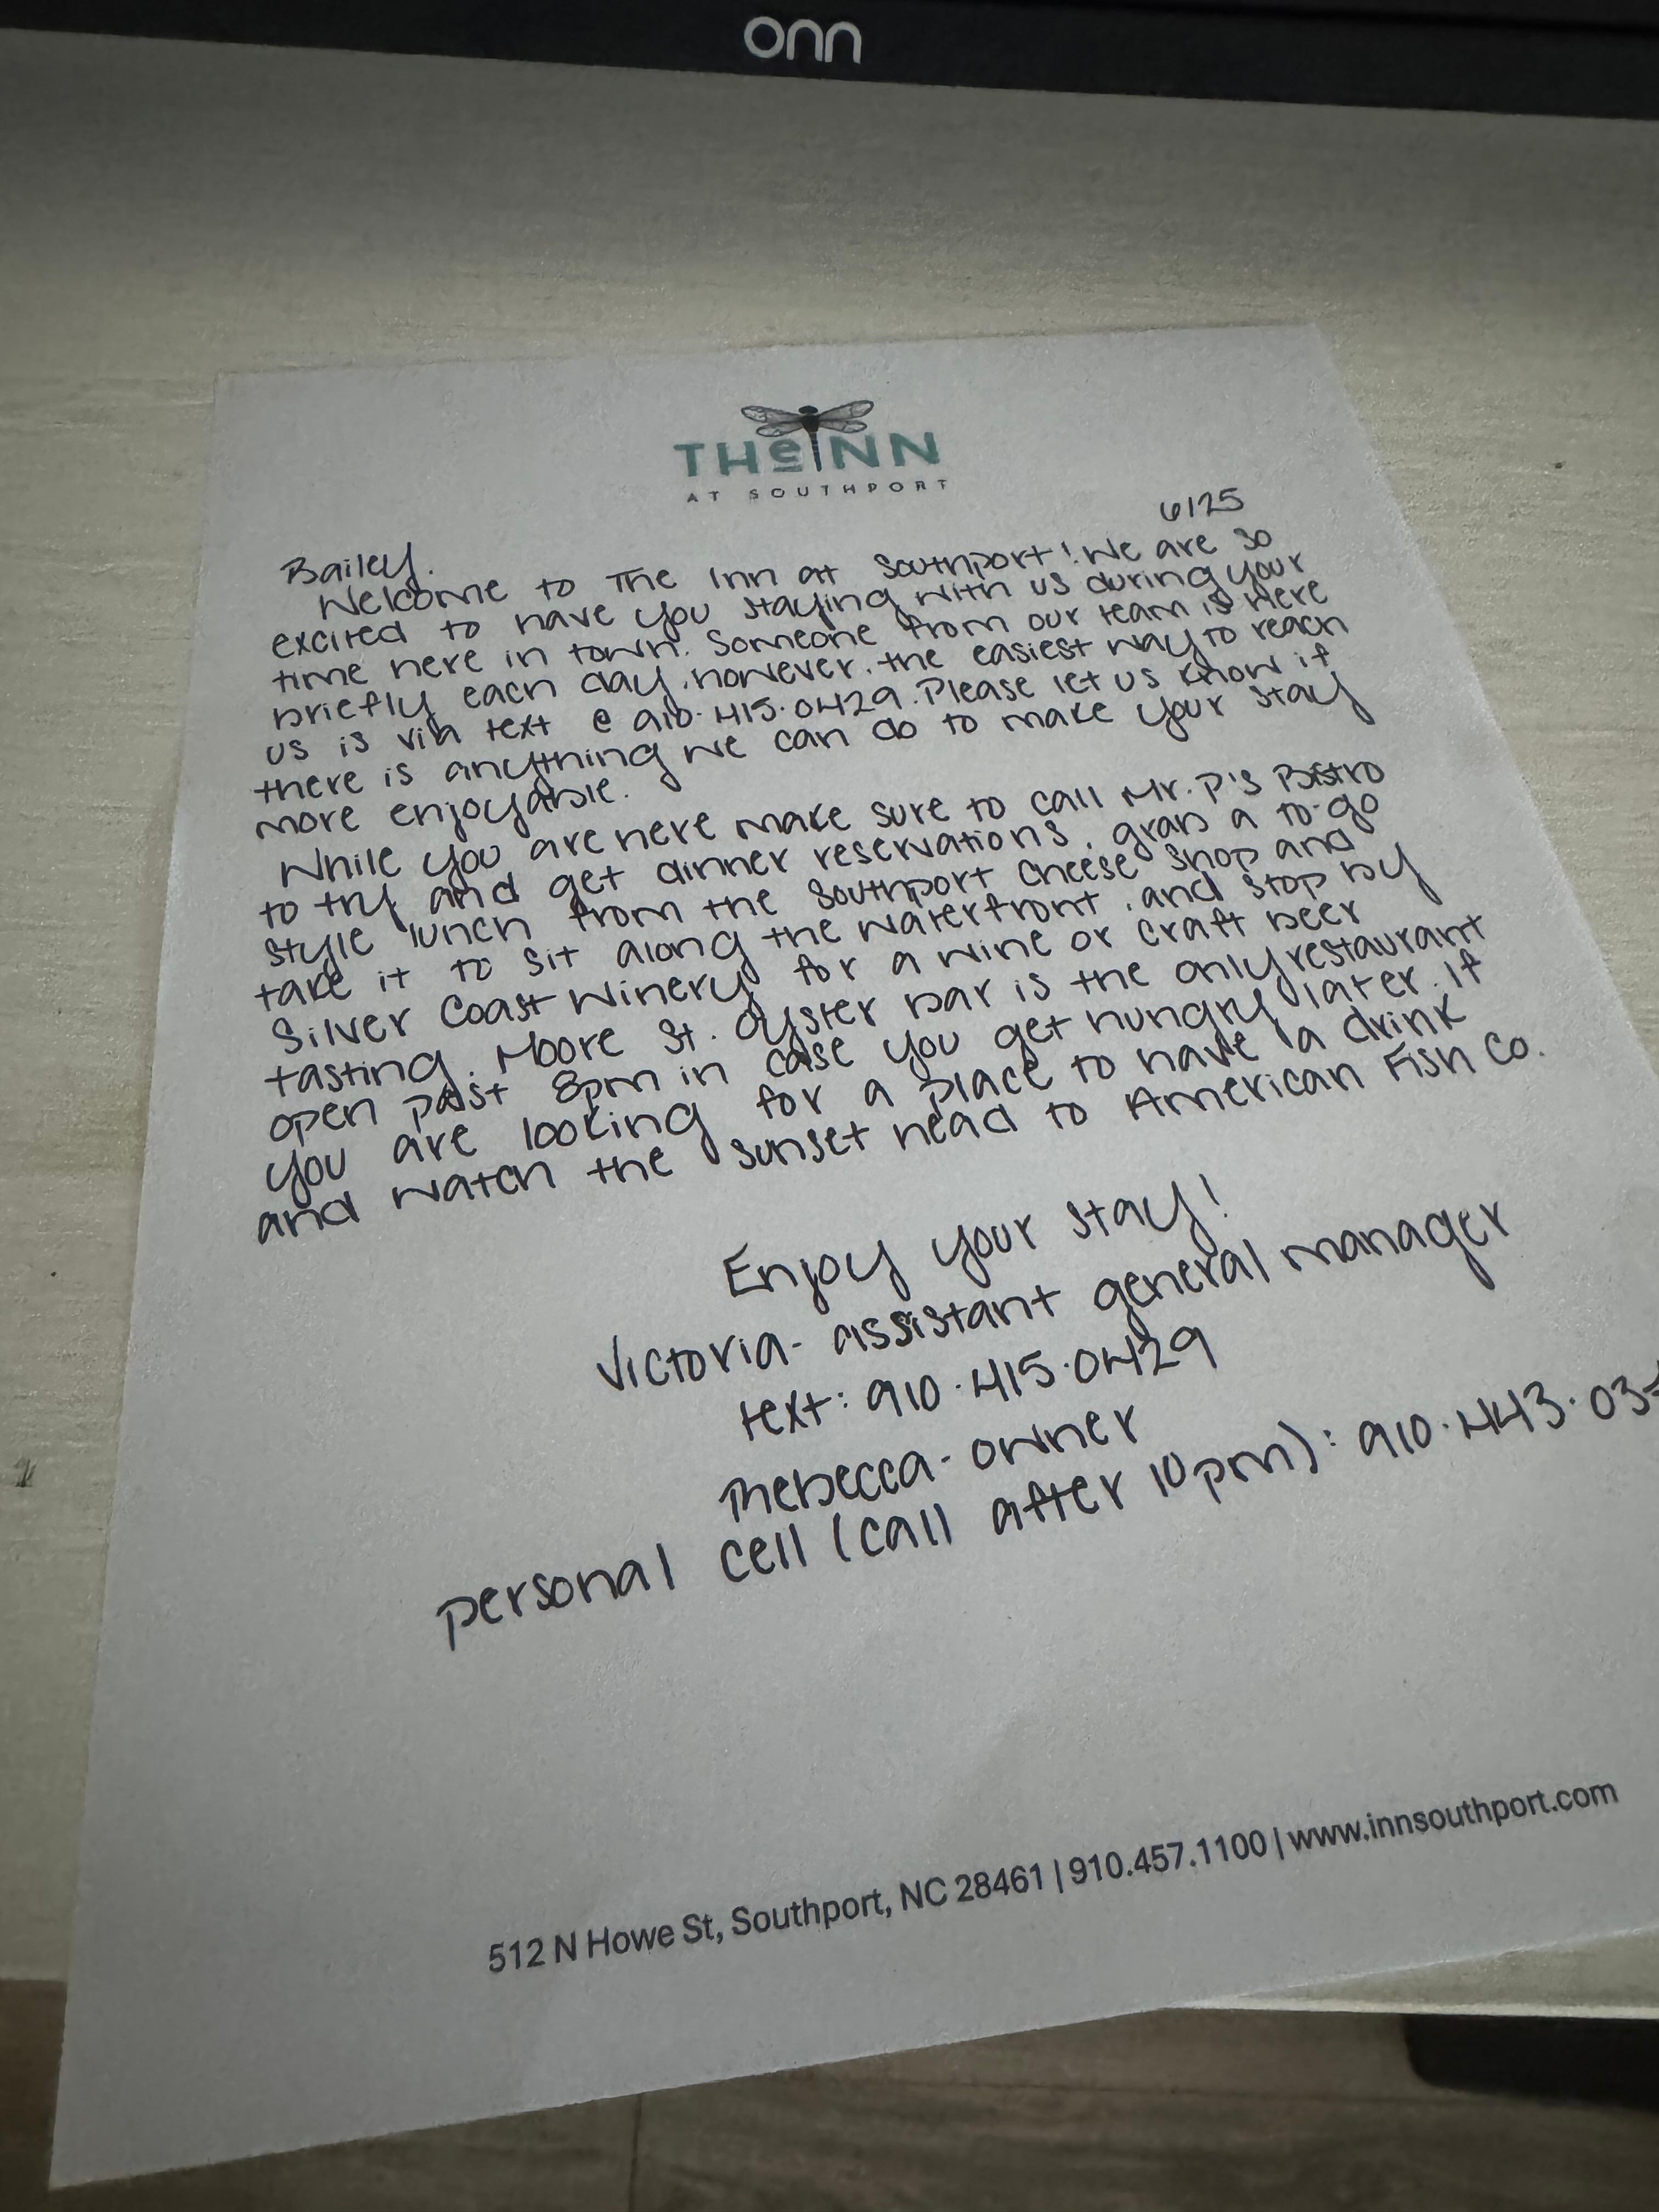 onn
THE INN
AT SOUTHPORT
6/25
Bailey,
Welcome to The Inn at Southport! We are so
excited to have you staying with us during your
time here in town. Someone from our team is here
briefly each day, however, the easiest way to reach
us is via text @ 910.415.0429. Please let us know if
there is anything we can do to make your stay
more enjoyable.
While you are here make sure to call Mr. P's Bistro
to try and get dinner reservations, grab a to-go
style lunch from the Southport Cheese Shop and
take it to sit along the waterfront, and stop by
Silver Coast Winery for a wine or craft beer
tasting. Moore St. Oyster bar is the only restaurant
open past 8pm in case you get hungry later. If
you are looking for a place to have a drink
and watch the sunset head to American Fish Co.
Enjoy your stay!
Victoria- assistant general manager
text: 910.415.0429
Rebecca- owner
personal cell (call after 10pm): 910.443.03
512 N Howe St, Southport, NC 28461 | 910.457.1100 | www.innsouthport.com